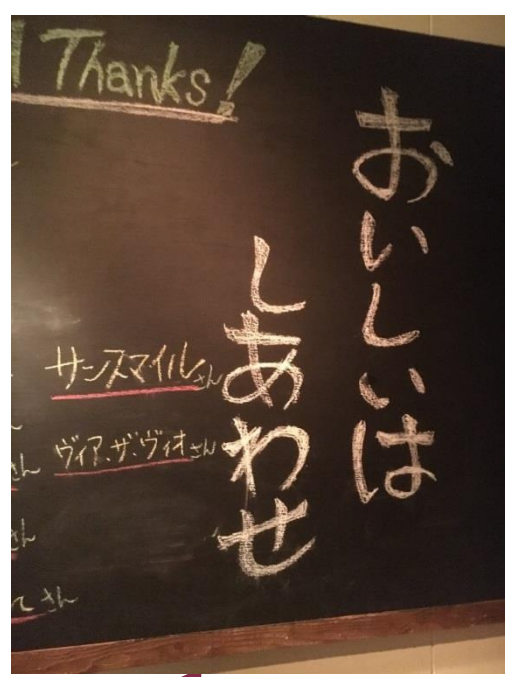 Thanks!
おいしいは
しあわせ
サンスマイルさん
ヴィア.ザ.ヴィオさん
さん
さん
さん